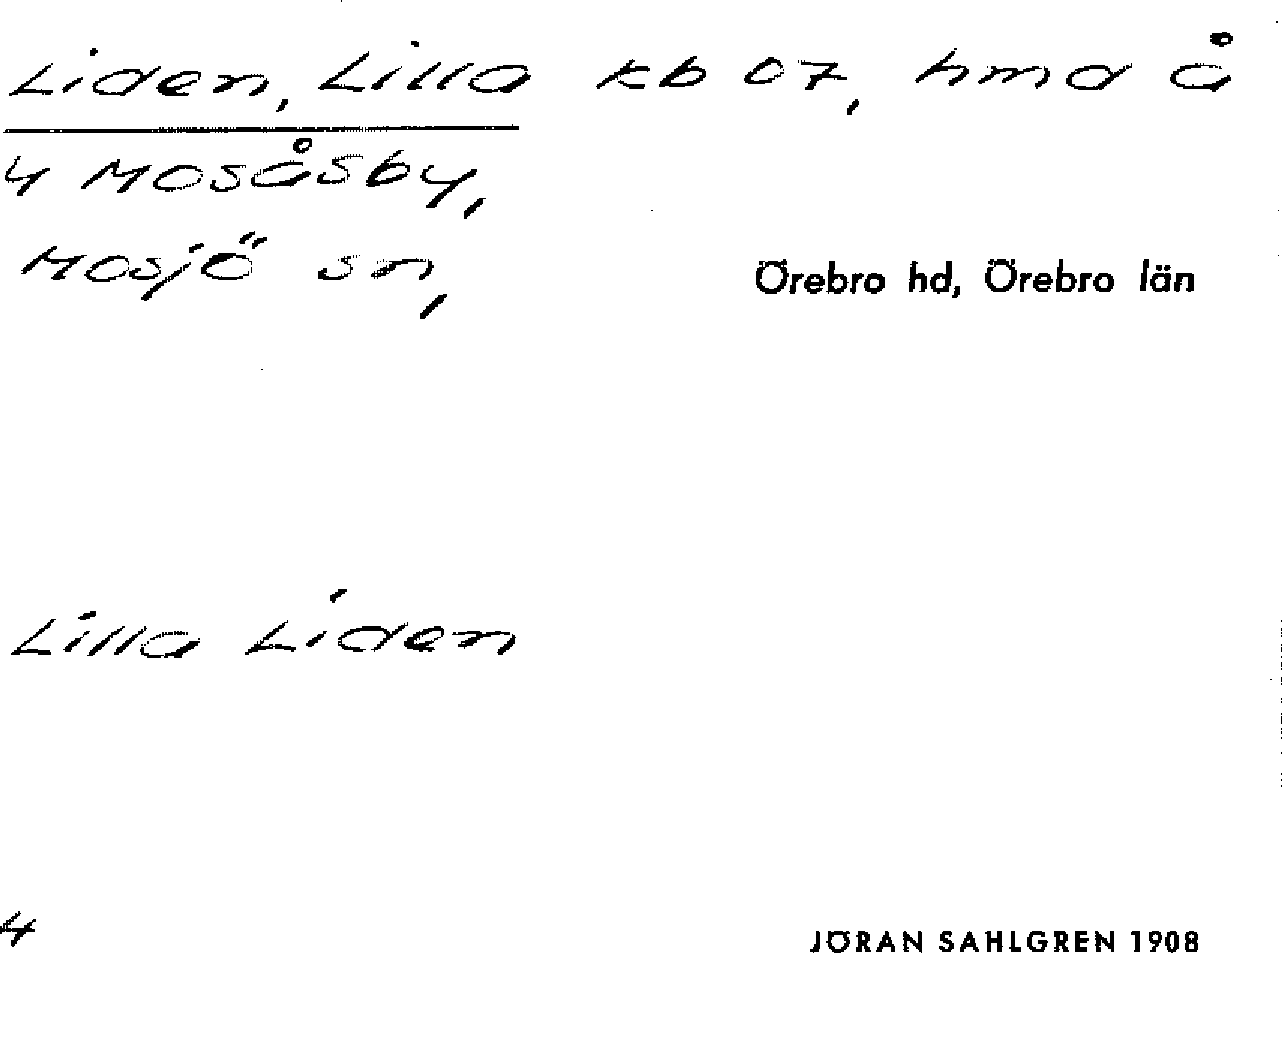 Liden, Lilla kb 07, hmd å
4 Mosåsby,
Mosjö sn,
Örebro hd, Örebro län
Lilla Liden
4
JÖRAN SAHLGREN 1908